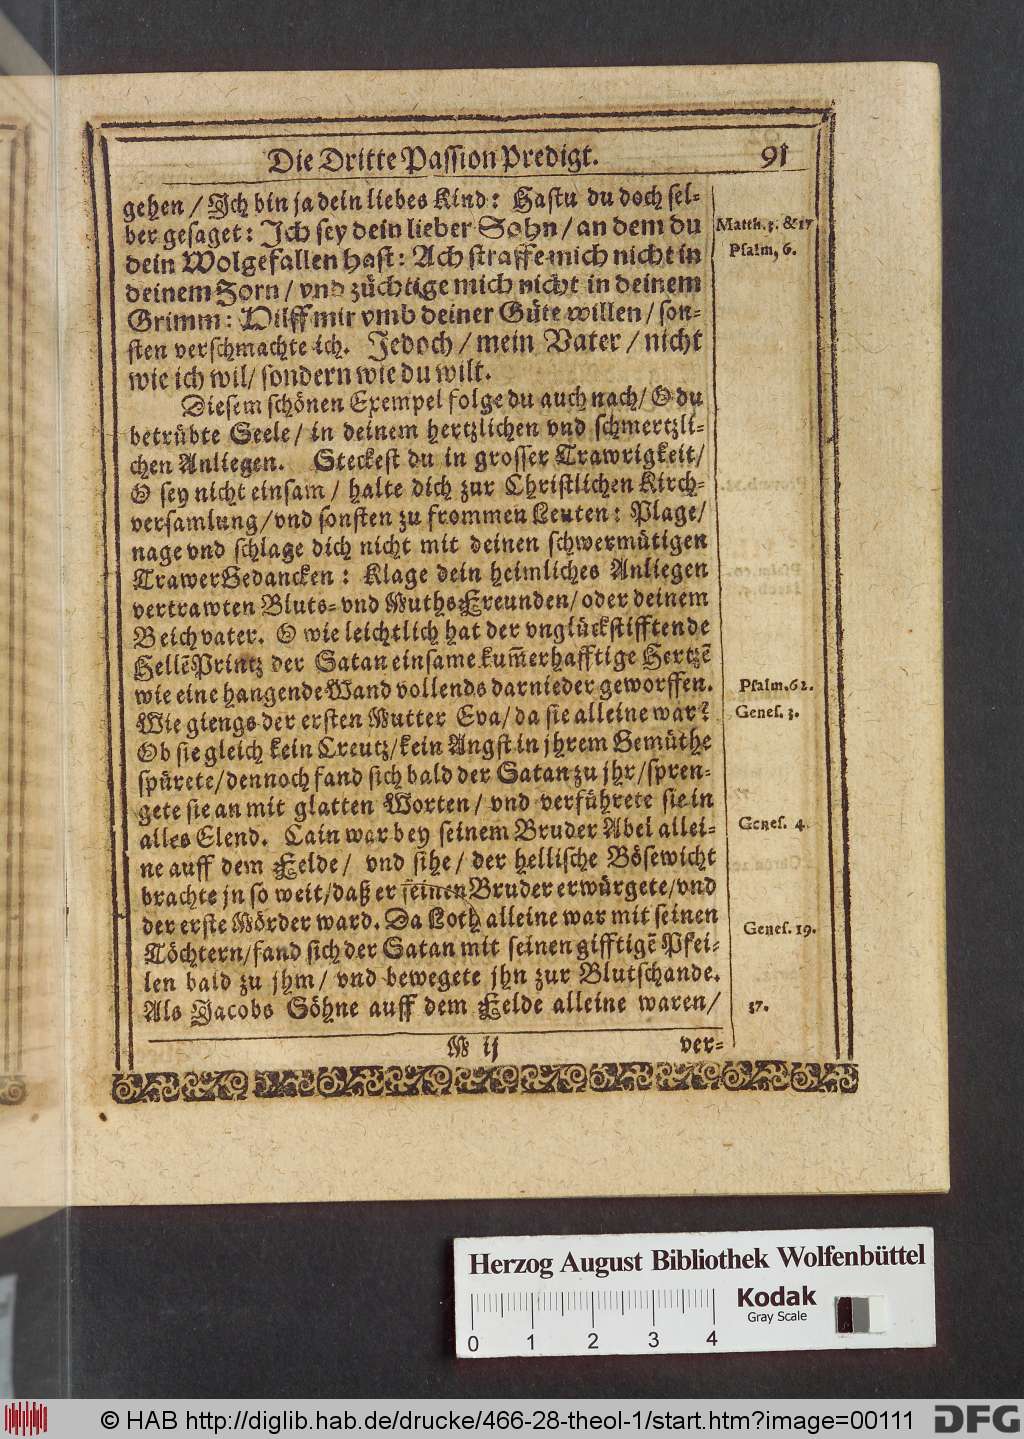 Die Dritte Passion Predigt. 91
gehen / Ich bin ja dein liebes Kind: Hastu du doch sel-
ber gesaget: Ich sey dein lieber Sohn / an dem du
Matth. 3. & 17
dein Wolgefallen hast: Ach straffe mich nicht in
Psalm, 6.
deinem Zorn / vnd züchtige mich nicht in deinem
Grimm: Hilff mir vmb deiner Güte willen / son-
sten verschmachte ich. Jedoch / mein Vater / nicht
wie ich wil / sondern wie du wilt.
Diesem schönen Exempel folge du auch nach / O du
betrübte Seele / in deinem hertzlichen vnd schmertzli-
chen Anliegen. Steckest du in grosser Trawrigkeit /
O sey nicht einsam / halte dich zur Christlichen Kirch-
versamlung / vnd sonsten zu frommen Leuten: Plage /
nage vnd schlage dich nicht mit deinen schwermütigen
TrawerGedancken: Klage dein heimliches Anliegen
vertrawten Bluts- vnd Muths-Freunden / oder deinem
Beichvater. O wie leichtlich hat der vnglückstifftende
HellēPrintz der Satan einsame kum̄erhafftige Hertzē
wie eine hangende Wand vollends darnieder geworffen.
Psalm. 62.
Wie giengs der ersten Mutter Eva / da sie alleine war?
Genes. 3.
Ob sie gleich kein Creutz / kein Angst in jhrem Gemüthe
spürete / dennoch fand sich bald der Satan zu jhr / spren-
gete sie an mit glatten Worten / vnd verführete sie in
alles Elend. Cain war bey seinem Bruder Abel allei-
Genes. 4.
ne auff dem Felde / vnd sihe / der hellische Bösewicht
brachte jn so weit / daß er seinen Bruder erwürgete / vnd
der erste Mörder ward. Da Loth alleine war mit seinen
Genes. 19.
Töchtern / fand sich der Satan mit seinen gifftigē Pfei-
len bald zu jhm / vnd bewegete jhn zur Blutschande.
Als Jacobs Söhne auff dem Felde alleine waren /
37.
M ij ver-
Herzog August Bibliothek Wolfenbüttel
Kodak
Gray Scale
0 1 2 3 4
© HAB http://diglib.hab.de/drucke/466-28-theol-1/start.htm?image=00111
DFG